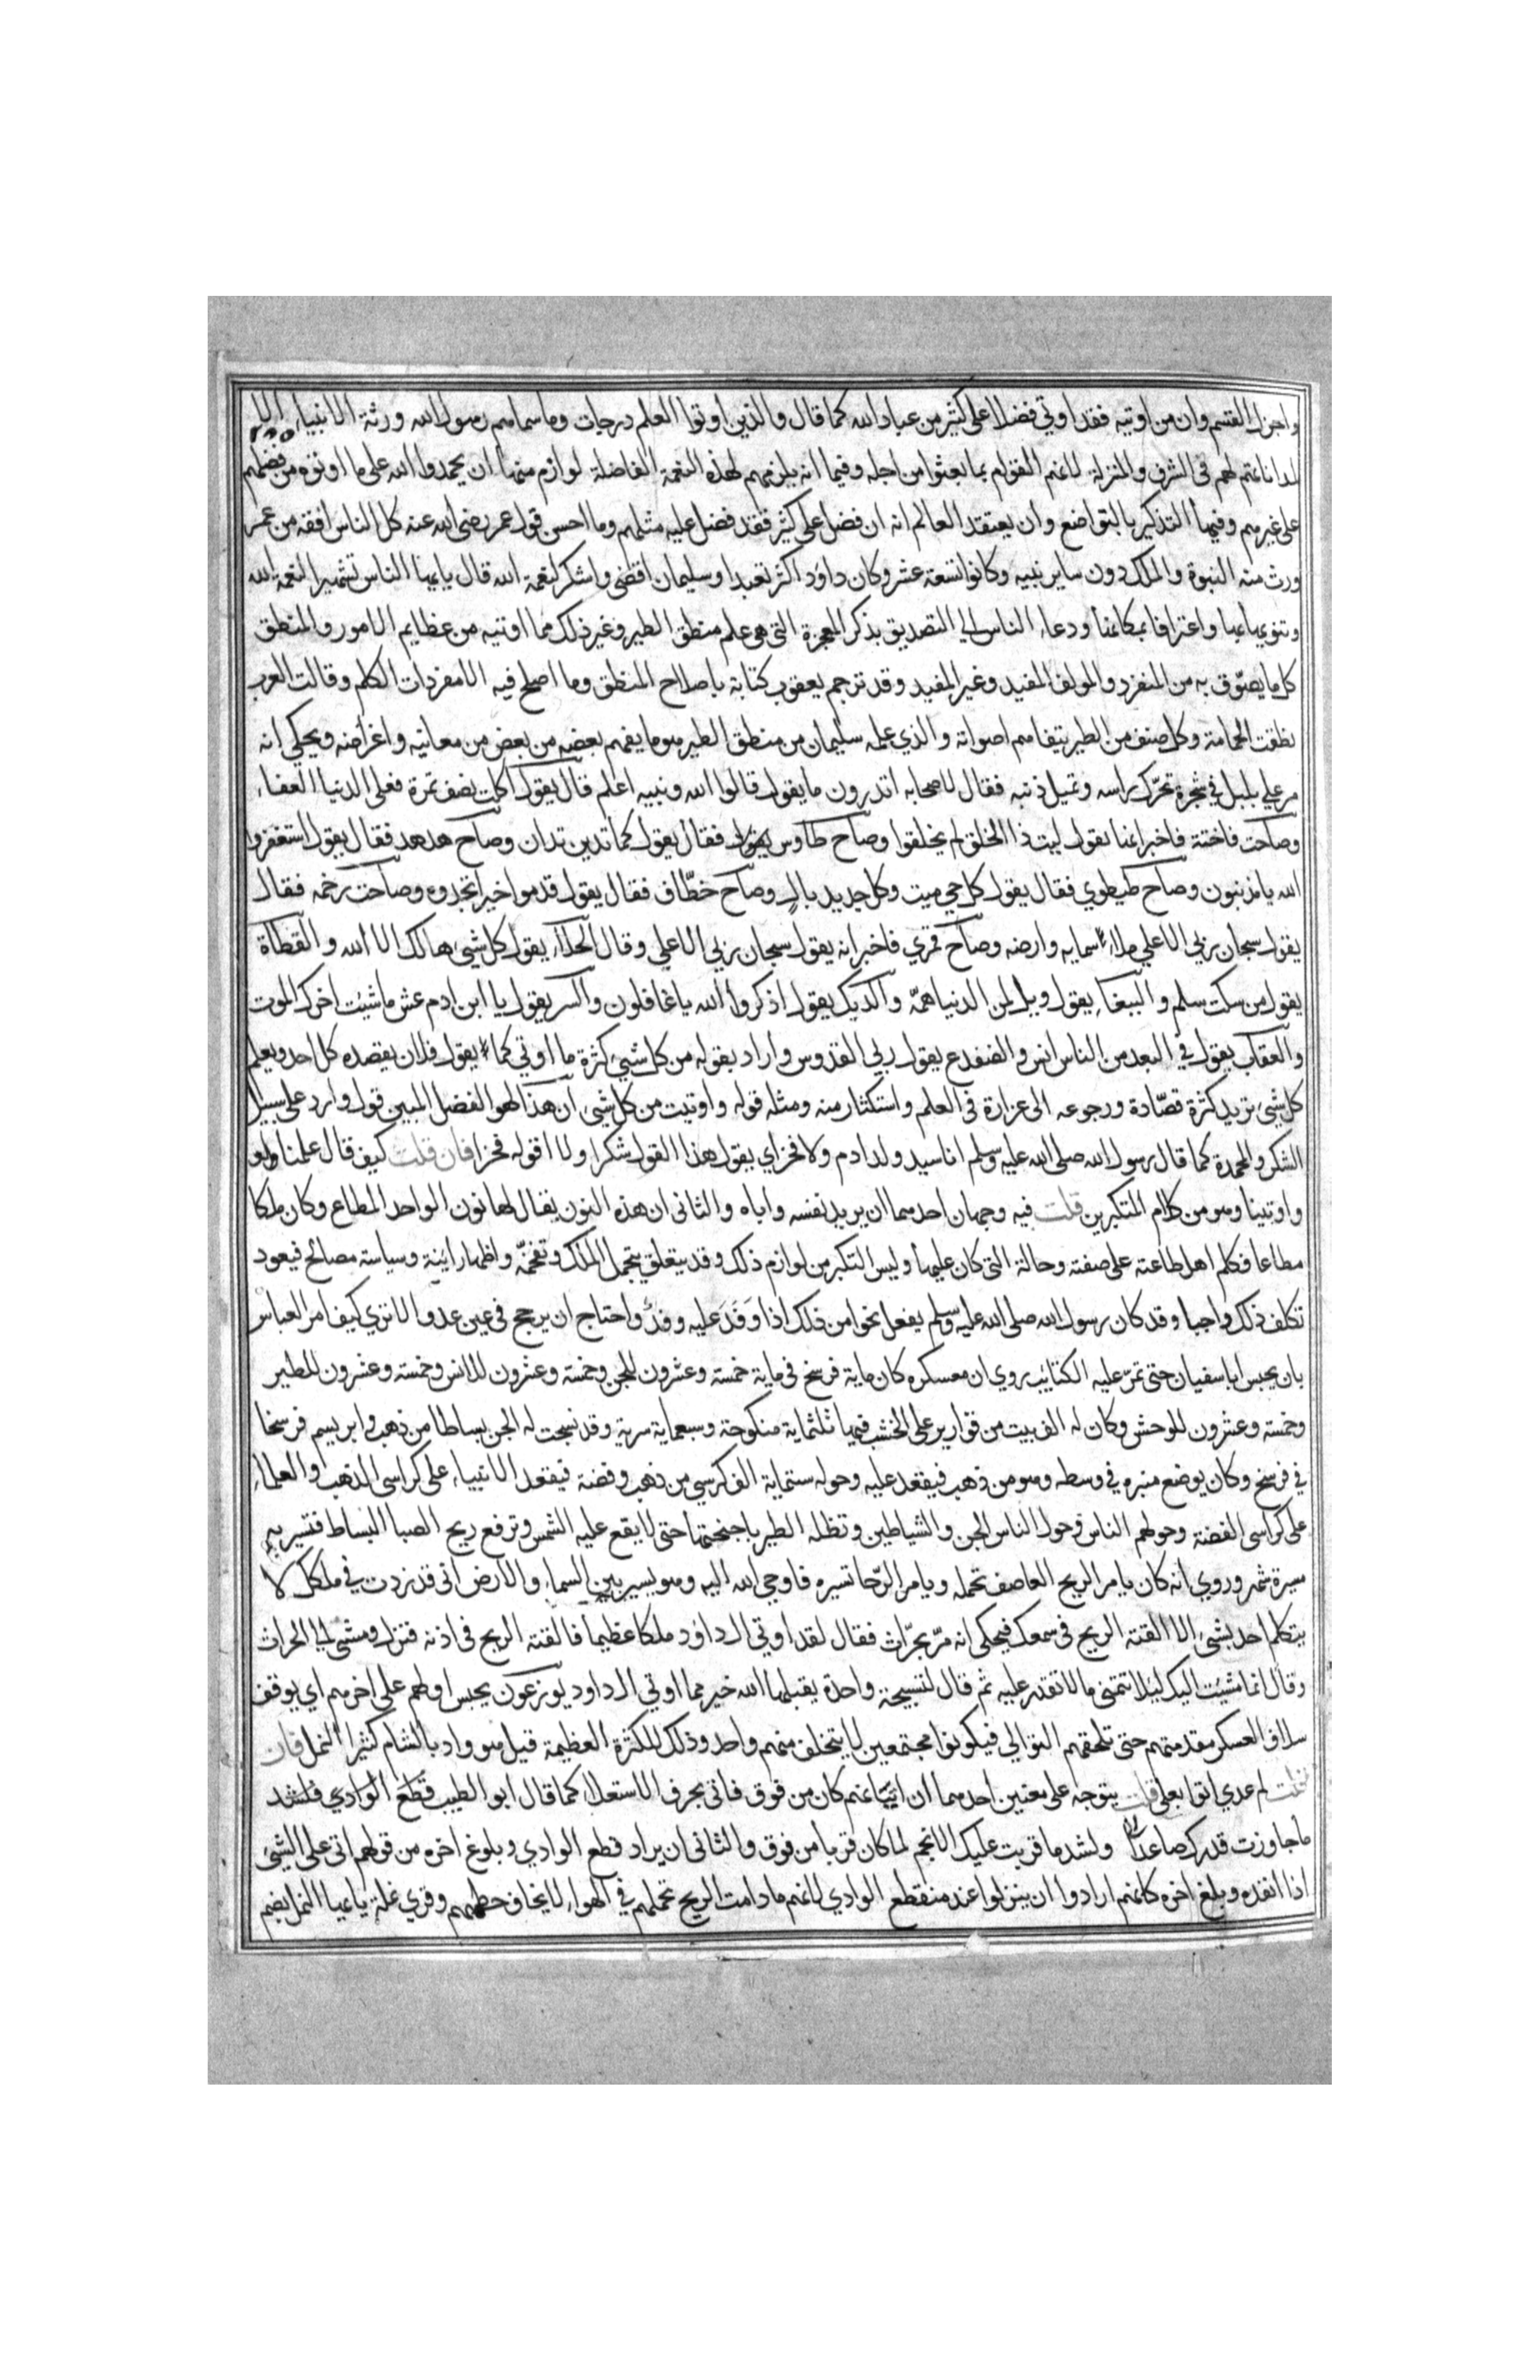 واجزل القسم وان من اوتيه فقد اوتي فضلا علي كثير من عباد الله كما قال والذين اوتوا العلم درجات وما سماهم رسول الله ورثة الانبياء الا
لمداناتهم لهم في الشرف والمنزلة لانهم القوام بما بعثوا من اجله وفيها انه يلزمهم لهذه النعمة الفاضلة لوازم منها ان يحمدوا الله على ما اوتوه من فضلهم
على غيرهم وفيها التذكير بالتواضع وان يعتقد العالم انه ان فضل علي كثير فقد فضل عليه مثلهم وما احسن قول عمر رضي الله عنه كل الناس افقه من عمر
ورث منه النبوة والملك دون ساير بنيه وكانوا تسعة عشر وكان داود اكثر تعبدا وسليمان اقضي واشكر لنعمة الله قال يايها الناس تشهيرا لنعمة الله
وتنويها بها واعترافا بمكانها ودعاء الناس الي التصديق بذكر المعجزة التي هي علم منطق الطير وغير ذلك مما اوتيه من عظايم الامور والمنطق
كل ما يصوّت به من المنفرد والمولف المفيد وغير المفيد وقد ترجم يعقوب كتابه باصلاح المنطق وما اصلح فيه الا مفردات الكلم وقالت العرب
نطقت الحمامة وكل صنف من الطير يتفاهم اصواته والذي علمه سليمان من منطق الطير هو ما يفهم بعضه من بعض من معانيه واغراضه ويحكي انه
مر علي بلبل في شجرة تحرّك راسه وتميل ذنبه فقال لاصحابه اتدرون ما يقول قالوا الله ونبيه اعلم قال يقول اكلت نصف تمرة فعلي الدنيا العفاء
وصاحت فاختة فاخبر انها تقول ليت ذا الخلق لم يخلقوا وصاح طاوس فقال يقول كما تدين تدان وصاح هدهد فقال يقول استغفروا
الله يا مذنبون وصاح طيطوي فقال يقول كل حي ميت وكل جديد بال وصاح خطّاف فقال يقول قدموا خيرا تجدوه وصاحت رخمه فقال
يقول سبحان ربي الاعلي ملاء سمايه وارضه وصاح قمري فاخبر انه يقول سبحان ربي الاعلي وقال الحداء يقول كل شيئ هالك الا الله والقطاة
يقول من سكت سلم والببغاء يقول ويل لمن الدنيا همّه والديك يقول اذكروا الله يا غافلون والنسر يقول يا ابن ادم عش ما شيت اخرك الموت
والعقاب يقول في البعد من الناس انس والضفدع يقول ربي القدوس واراد بقوله من كل شيئ كثرة ما اوتي كما يقول فلان يقصده كل احد ويعلم
كل شيئ تريد كثرة قصّاده ورجوعه الى غزارة في العلم واستكثار منه ومثله قوله واوتيت من كل شيئ ان هذا لهو الفضل المبين قول وارد على سبيل
الشكر والمحمدة كما قال رسول الله صلى الله عليه وسلم انا سيد ولد ادم ولا فخر اي يقول هذا القول شكرا ولا اقوله فخرا فان قلت كيف قال علمنا
واوتينا وهو من كلام المتكبرين قلت فيه وجهان احدهما ان يريد نفسه واباه والثاني ان هذه النون يقال لها نون الواحد المطاع وكان ملكا
مطاعا فكلم اهل طاعته على صفته وحالة التي كان عليها وليس التكبر من لوازم ذلك وقد يتعلق بتجمل الملك وتفخمّه واظهار ايينه وسياسته مصالح فيعود
تكلف ذلك واجبا وقد كان رسول الله صلى الله عليه وسلم يفعل نحوا من ذلك اذا وَفَدَ عليه وفدٌ واحتاج ان يرجح في عين عدو الا تري كيف امر العباس
بان يحبس ابا سفيان حتى تمرّ عليه الكتائب روي ان معسكره كان ماية فرسخ في ماية خمسة وعشرون للجن وخمسة وعشرون للانس وخمسة وعشرون للطير
وخمسة وعشرون للوحش وكان له الف بيت من قوارير على الخشب فيها ثلثماية منكوحة وسبعماية سرية وقد نسجت له الجن بساطا من ذهب وابريسم فرسخا
في فرسخ وكان يوضع منبره في وسطه وهو من ذهب فيقعد عليه وحوله ستماية الف كرسي من ذهب وفضة فيقعد الانبياء على كراسي الذهب والعلماء
على كراسي الفضة وحولهم الناس وحول الناس الجن والشياطين وتظله الطير باجنحتها حتى لا يقع عليه الشمس وترفع ريح الصبا البساط فتسير به
مسيرة شهر وروي انه كان يامر الريح العاصف تحمله ويامر الرّخا تسيره فاوحي الله اليه وهو يسير بين السماء والارض اني قد زدت في ملكك لا
يتكلم احد بشئ الا القته الريح في سمعك فيحكى انه مرّ بحرّاث فقال لقد اوتي ال داود ملكا عظيما فالقته الريح في اذنه فنزل ومشي الي الحراث
وقال انما مشيت اليك ليلا تتمني ما لا تقدر عليه ثم قال لتسبيحة واحدة يقبلها الله خير مما اوتي ال داود يوزعون يحبس اولهم على اخرهم اي يوقف
سلاف العسكر مقدمتهم حتى تلحقهم التوالي فيكونوا مجتمعين لا يتخلف منهم واحد وذلك للكثرة العظيمة قيل هو واد بالشام كثير النمل فان
قلت لم عدي اتوا بعلى قلت يتوجه على معنيين احدهما ان اتيانهم كان من فوق فاتي بحرف الاستعلاء كما قال ابو الطيب قَطَعَ الوادي فلشد
ما جاوزت قدرك صاعدا ولشد ما قربت عليك الانجم لما كان قربا من فوق والثاني ان يراد قطع الوادي وبلوغ اخره من قولهم اتي على الشيئ
اذا انفده وبلغ اخره كانهم ارادوا ان ينزلوا عند منقطع الوادي لانهم ما دامت الريح تحملهم في الهواء لا يخاف حطمهم وقري نملة يا ايها النمل بضم